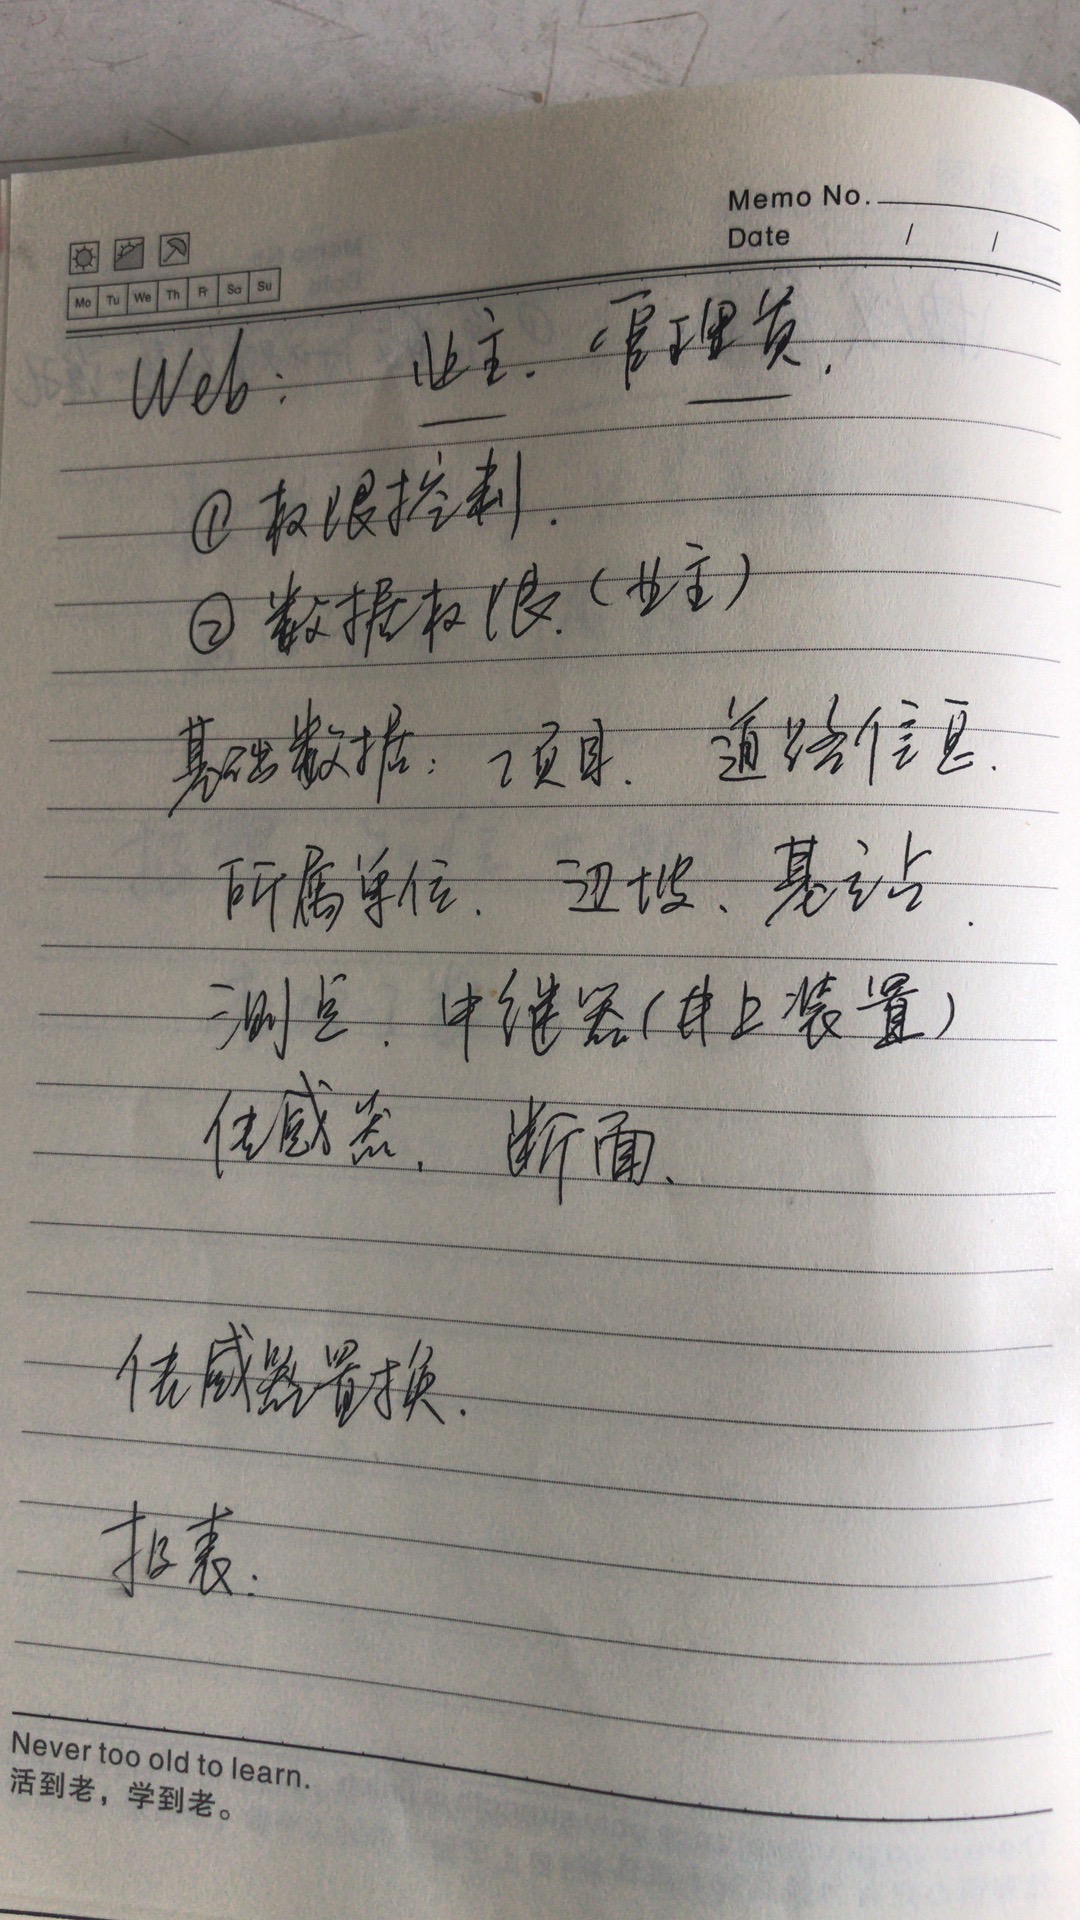 Memo No.
Date / /
Mo Tu We Th Fr Sa Su
Web: 业主. 管理员.
① 权限控制.
② 数据权限.(业主)
基础数据: 项目. 道路信息.
所属单位、边坡、基站.
测点. 中继器(井上装置)
传感器. 断面、
传感器置换.
报表.
Never too old to learn.
活到老，学到老。